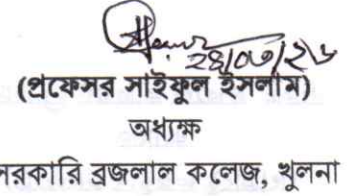 ২৪/০৩/২৬
(প্রফেসর সাইফুল ইসলাম)
অধ্যক্ষ
সরকারি ব্রজলাল কলেজ, খুলনা